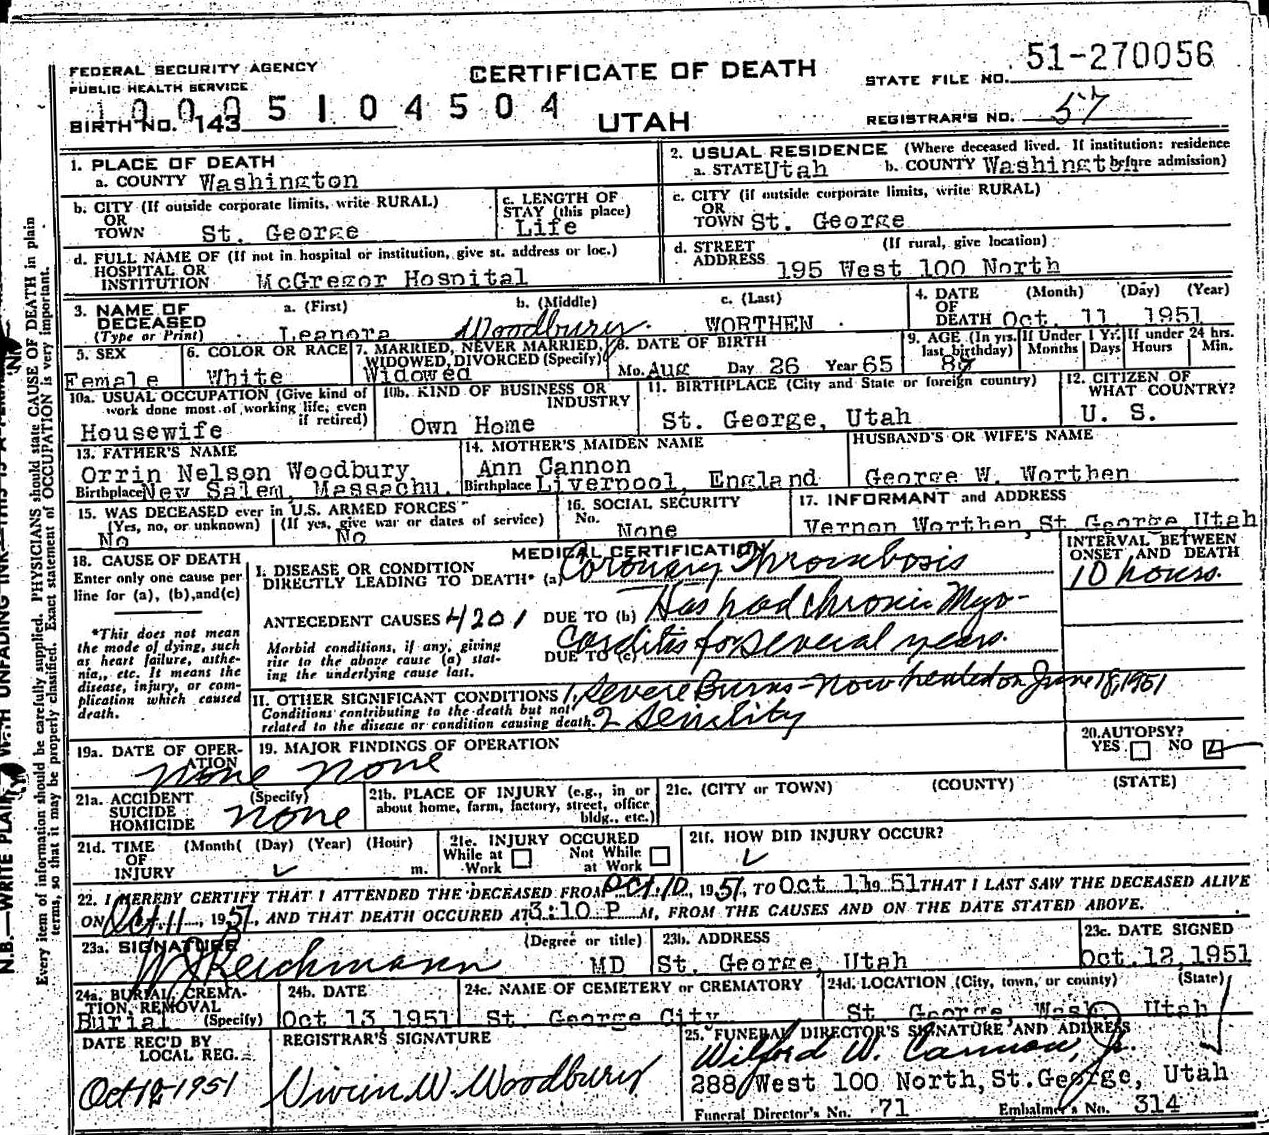 FEDERAL SECURITY AGENCY
PUBLIC HEALTH SERVICE
CERTIFICATE OF DEATH
STATE FILE NO. 51-270056
BIRTH NO. 143
5104504
UTAH
REGISTRAR'S NO. 57
1. PLACE OF DEATH
a. COUNTY Washington
2. USUAL RESIDENCE (Where deceased lived. If institution: residence before admission)
a. STATE Utah b. COUNTY Washington
b. CITY (If outside corporate limits, write RURAL)
OR
TOWN St. George
c. LENGTH OF
STAY (this place)
Life
c. CITY (if outside corporate limits, write RURAL)
OR
TOWN St. George
d. FULL NAME OF (If not in hospital or institution, give st. address or loc.)
HOSPITAL OR
INSTITUTION McGregor Hospital
d. STREET (If rural, give location)
ADDRESS 195 West 100 North
3. NAME OF
DECEASED
(Type or Print)
a. (First) b. (Middle) c. (Last)
Leanora Woodbury WORTHEN
4. DATE (Month) (Day) (Year)
OF
DEATH Oct. 11 1951
5. SEX
Female
6. COLOR OR RACE
White
7. MARRIED, NEVER MARRIED,
WIDOWED, DIVORCED (Specify)
Widowed
8. DATE OF BIRTH
Mo. Aug Day 26 Year 65
9. AGE (In yrs.
last birthday)
If Under 1 Yr.
Months Days
If under 24 hrs.
Hours Min.
10a. USUAL OCCUPATION (Give kind of
work done most of working life, even
if retired)
Housewife
10b. KIND OF BUSINESS OR
INDUSTRY
Own Home
11. BIRTHPLACE (City and State or foreign country)
St. George, Utah
12. CITIZEN OF
WHAT COUNTRY?
U. S.
13. FATHER'S NAME
Orrin Nelson Woodbury
Birthplace New Salem, Massachu.
14. MOTHER'S MAIDEN NAME
Ann Cannon
Birthplace Liverpool, England
HUSBAND'S OR WIFE'S NAME
George W. Worthen
15. WAS DECEASED ever in U.S. ARMED FORCES
(Yes, no, or unknown) (If yes, give war or dates of service)
No No
16. SOCIAL SECURITY
No. None
17. INFORMANT and ADDRESS
Vernon Worthen, St. George, Utah
18. CAUSE OF DEATH
Enter only one cause per
line for (a), (b), and (c)
*This does not mean
the mode of dying, such
as heart failure, asthe-
nia, etc. It means the
disease, injury, or com-
plication which caused
death.
MEDICAL CERTIFICATION
I. DISEASE OR CONDITION
DIRECTLY LEADING TO DEATH* (a) Coronary Thrombosis
INTERVAL BETWEEN
ONSET AND DEATH
10 hours.
ANTECEDENT CAUSES 4201 DUE TO (b) Has had chronic Myo-
Morbid conditions, if any, giving
rise to the above cause (a) stat-
ing the underlying cause last.
DUE TO (c) carditis for several years.
II. OTHER SIGNIFICANT CONDITIONS 1. Severe Burns - Now healed on June 18, 1951
Conditions contributing to the death but not
related to the disease or condition causing death. 2 Senility
19a. DATE OF OPER-
ATION
none
19. MAJOR FINDINGS OF OPERATION
none
20. AUTOPSY?
YES NO
21a. ACCIDENT (Specify)
SUICIDE
HOMICIDE none
21b. PLACE OF INJURY (e.g., in or
about home, farm, factory, street, office
bldg., etc.)
21c. (CITY or TOWN) (COUNTY) (STATE)
21d. TIME (Month( (Day) (Year) (Hour)
OF
INJURY m.
21e. INJURY OCCURED
While at Work Not While at Work
21f. HOW DID INJURY OCCUR?
22. I HEREBY CERTIFY THAT I ATTENDED THE DECEASED FROM Oct. 10, 1951, TO Oct 11 19 51 THAT I LAST SAW THE DECEASED ALIVE
ON Oct. 11, 1951, AND THAT DEATH OCCURED AT 3:10 P M, FROM THE CAUSES AND ON THE DATE STATED ABOVE.
23a. SIGNATURE (Degree or title)
Reichmann MD
23b. ADDRESS
St. George, Utah
23c. DATE SIGNED
Oct. 12, 1951
24a. BURIAL, CREMA-
TION, REMOVAL
Burial (Specify)
24b. DATE
Oct 13 1951
24c. NAME OF CEMETERY or CREMATORY
St. George City
24d. LOCATION (City, town, or county) (State)
St. George, Wash Utah
DATE REC'D BY
LOCAL REG.
Oct 1951
REGISTRAR'S SIGNATURE
Vivian W. Woodbury
25. FUNERAL DIRECTOR'S SIGNATURE AND ADDRESS
Wilford W. Cannon, Jr.
288 West 100 North, St. George, Utah
Funeral Director's No. 71 Embalmer's No. 314
Every item of information should be carefully supplied. PHYSICIANS should state CAUSE OF DEATH in plain
terms, so that it may be properly classified. Exact statement of OCCUPATION is very important.